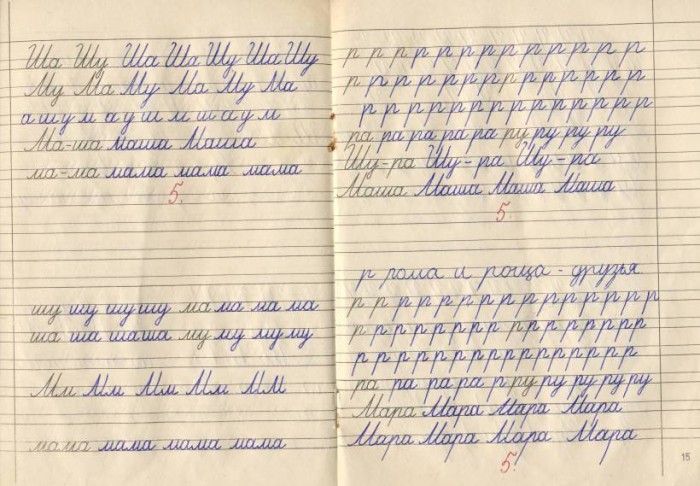 Ша Шу Ша Ша Шу Ша Шу
Му Ма Му Ма Му Ма
а ш у м а у ш м ш а у м
Ма-ша маша Маша
ма-ма мама мама мама
5.
шу шу шу шу ма ма ма ма
ша ша ша ша му му му му
Мм Мм Мм Мм Мм
мама мама мама мама
р р р р р р р р р р р р р р
р р р р р р р р р р р р р р
р р р р р р р р р р р р р р
ра ра ра ра ра ру ру ру ру
Шу-ра Шу-ра Шу-ра
Маша Маша Маша Маша
5.
р рома и роща - друзья
р р р р р р р р р р р р р р р
р р р р р р р р р р р р р р
р р р р р р р р р р р р р р
ра ра ра ра р ру ру ру ру ру
Мара Мара Мара Мара
Мара Мара Мара Мара
5.
15